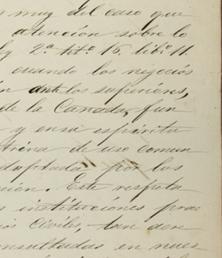 muy del caso que
atencion sobre lo
ley 2ª tit.º 16. lib.º 11
cuando los negocios
ante los superiores,
de la Camada, fun
y en su espíritu
trina de uso comun
adaptada por los
cion. Este respeta
instituciones pra
os Civiles, tan
consultadas en nues